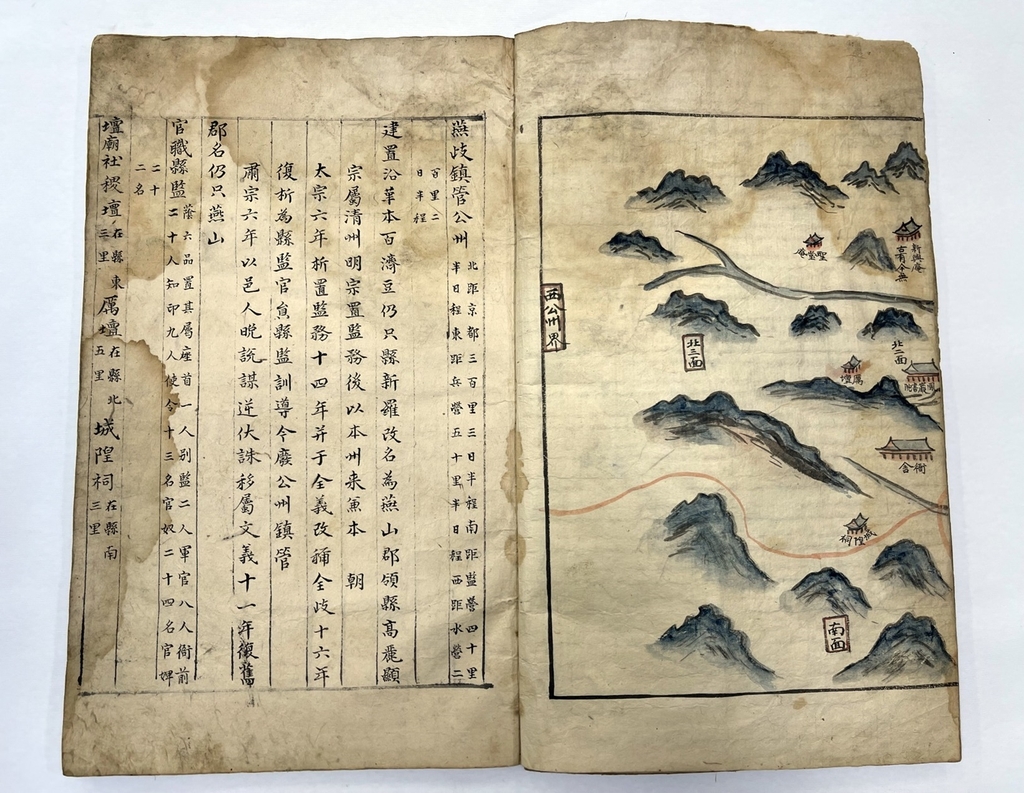 新興庵
古有今無
聖堂庵
西公州界
北三面
北二面
厲壇
鳳巖書院
衙舍
城隍祠
南面
燕歧鎮管公州 北距京都三百里三日半程南距監營四十里
半日程東距兵營五十里半日程西距水營二
百里二
日半程
建置沿革本百濟豆仍只縣新羅改名為燕山郡領縣高麗顯
宗屬清州明宗置監務後以本州来兼本 朝
太宗六年析置監務十四年并于全義改稱全歧十六年
復析為縣監官縣監訓導今廢公州鎮管
肅宗六年以邑人晩說謀逆伏誅移屬文義十一年復舊
郡名仍只燕山
官職縣監 蔭六品置其屬座首一人別監二人軍官八人衙前
二十人知印九人使令十三名官奴二十四名官婢
二十
二名
壇廟社稷壇 在縣東三里 厲壇 在縣北五里 城隍祠 在縣南三里